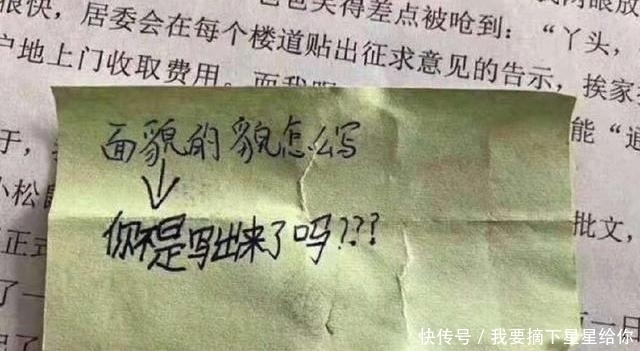 很快，居委会在每个楼道贴出征求意见的告示，挨家
户地上门收取费用。而我
爸也笑得差点被呛到：“丫头，
能“道
于，
小松鼠
批文，
正式
了一
有一日
面貌的貌怎么写
你不是写出来了吗???
快传号／我要摘下星星给你